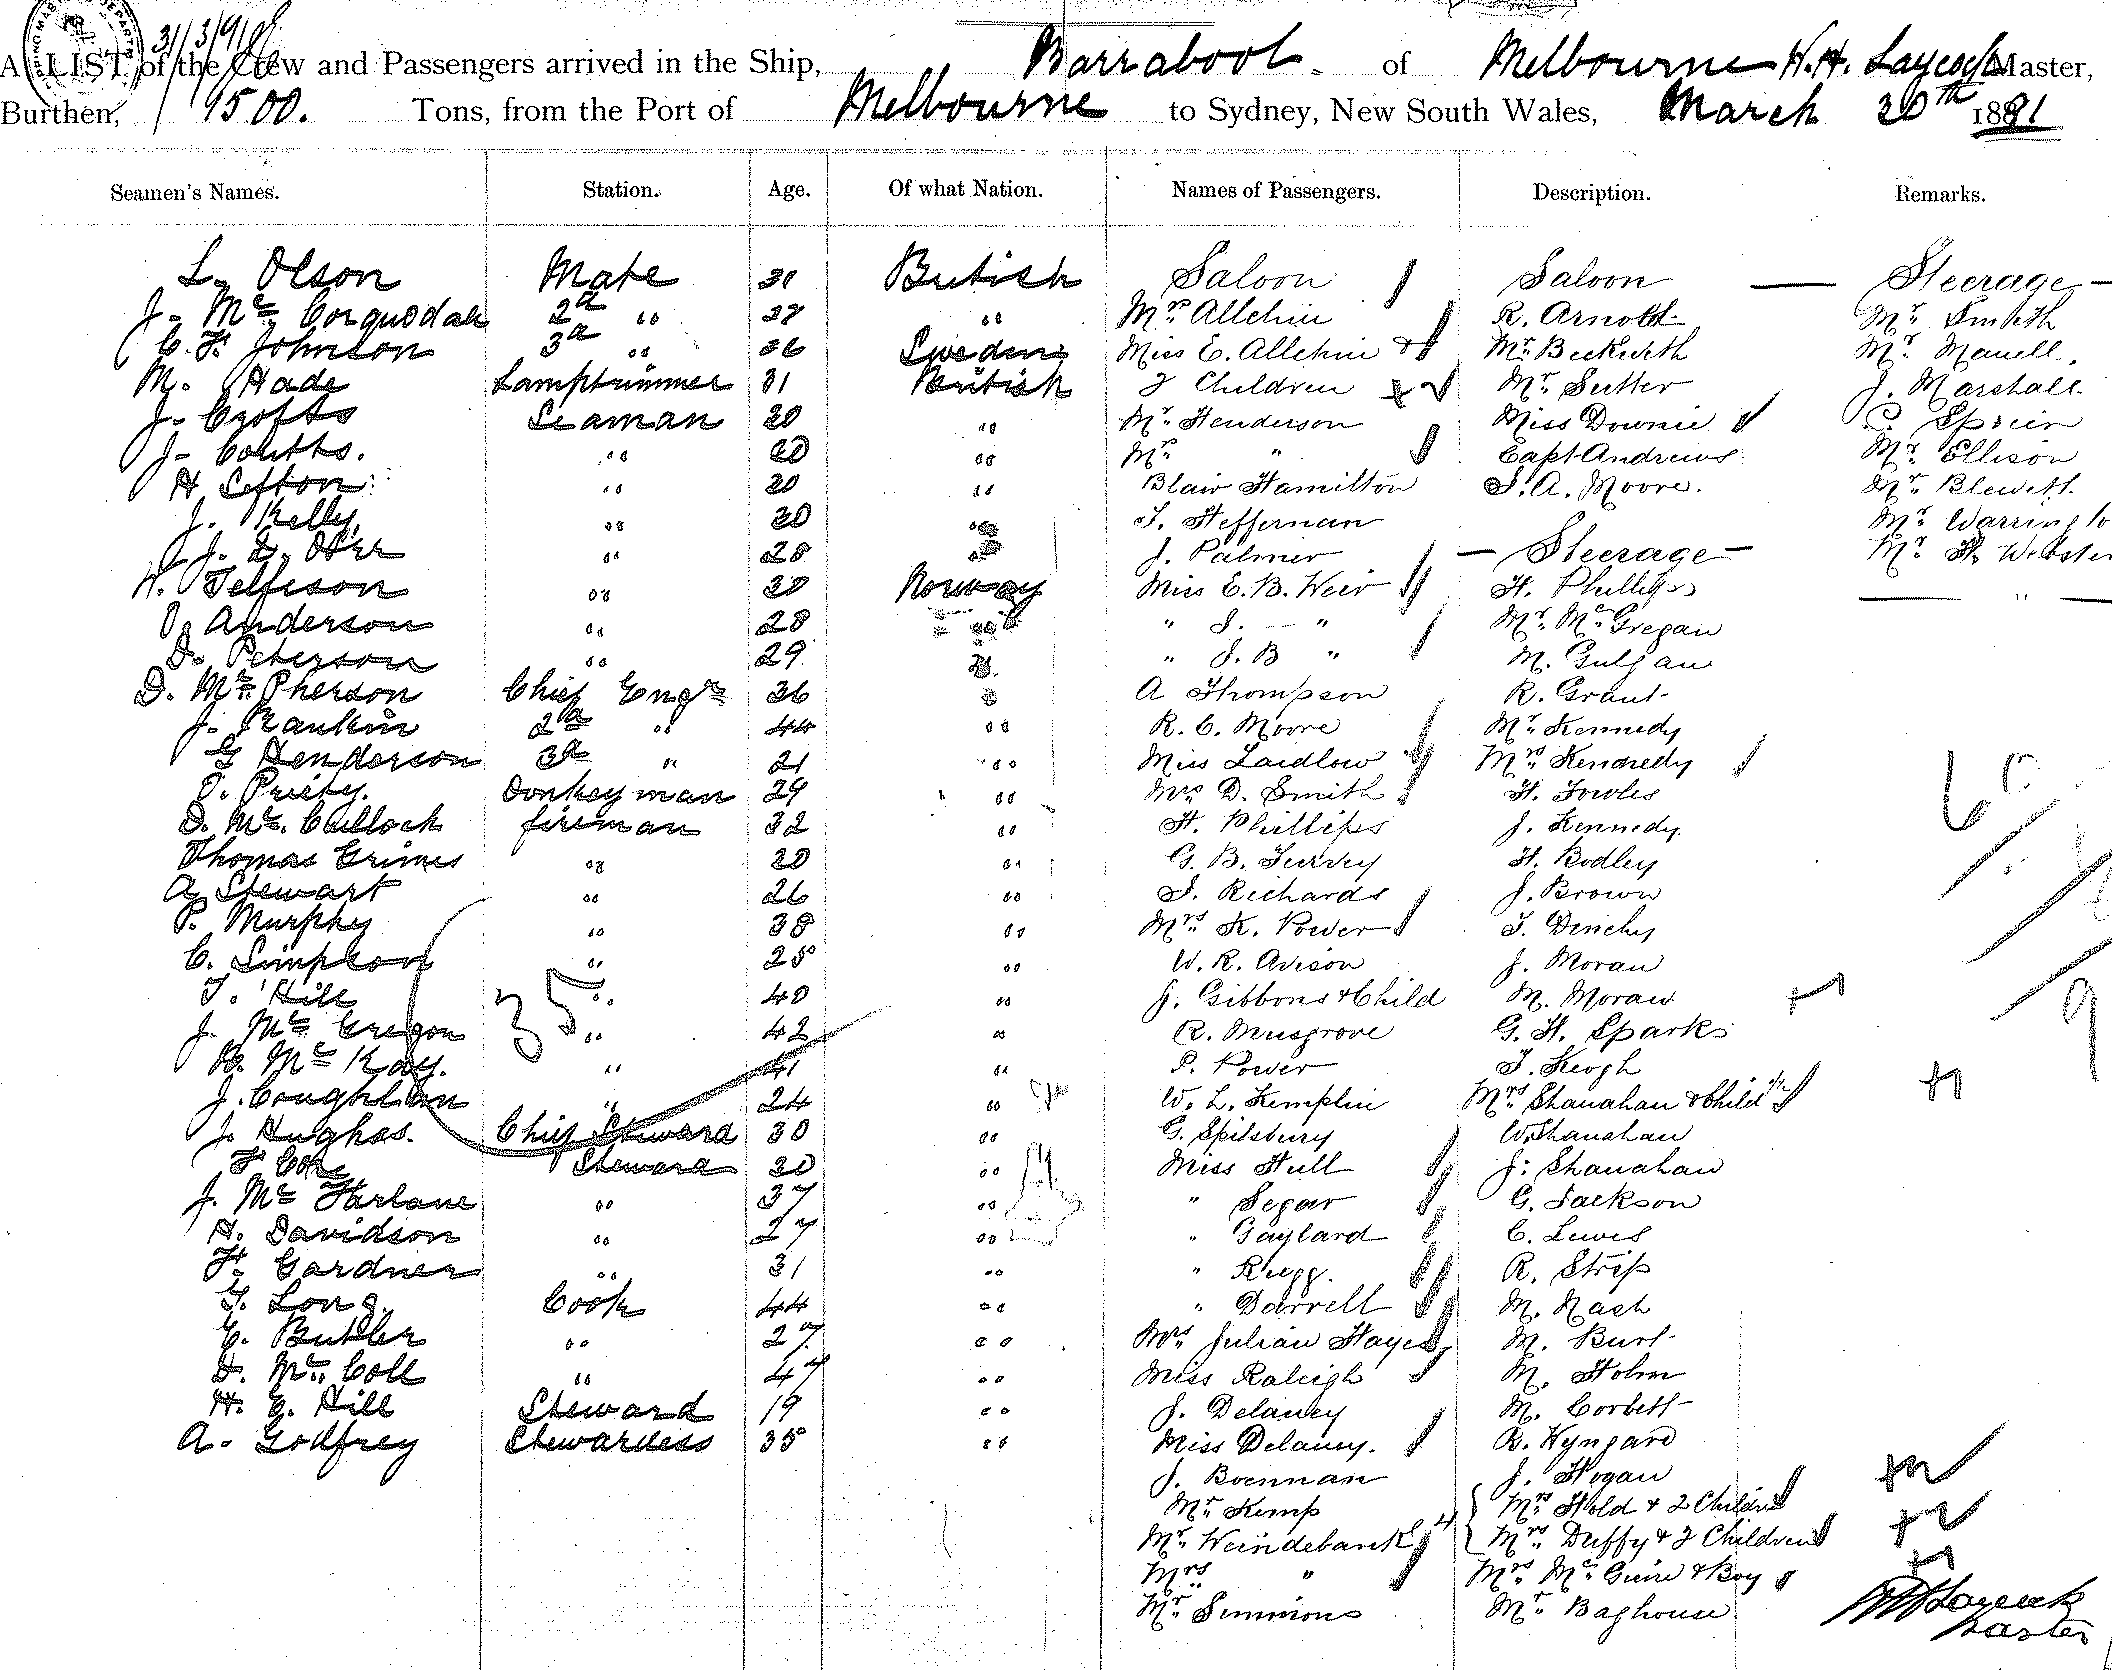 31/3/91
A LIST of the Crew and Passengers arrived in the Ship, Barrabool of Melbourne H.H. Laycock Master,
Burthen, 1500. Tons, from the Port of Melbourne to Sydney, New South Wales, March 30th 1891
Seamen's Names. Station. Age. Of what Nation. Names of Passengers. Description. Remarks.
L. Olson Mate 31 British Saloon Saloon — Steerage —
J. Mc Corquodale 2d " " Mrs Allchin R. Arnold Mr. Smith
C. F. Johnson 3d " 26 Sweden Miss E. Allchin & Mr. Beckwith Mr. Manell.
M. Hade Lamptrimmer 31 British 2 Children Mr. Sutter J. Marshall
J. Crofts Seaman 30 " Mr. Henderson Miss Downie Speir
J. Coutts. " 20 " Mrs " Capt Andrews Mr. Ellison
H Lefton " 20 " Blair Hamilton S. A. Moore. Mr. Blewett
J. Kelly. " 30 " T. Heffernan Mr. Warrington
J. L. Orr " 28 " J. Palmer — Steerage — Mr. H. Webster
W. Tellison " 30 Norway Miss E. B. Weir H. Phillips — " —
O. Anderson " 28 " " J. — " Mr. Mc Gregan
D. Peterson " 29 " " J. B " M. Gulgan
D. Mc Pherson Chief Engr 36 " A Thompson R. Grant
J. Rankin 2d " 44 " R. C. Moore Mr. Kennedy
G Henderson 3d " 21 " Miss Laidlow Mrs Kennedy
P. Priety. Donkeyman 29 " Mrs D. Smith H. Fowles
D. Mc. Cullock fireman 32 " H. Phillips J. Kennedy
Thomas Grimes " 20 " G. B. Turvey H. Bodley
A Stewart " 26 " T. Richards J. Brown
P. Murphy " 38 " Mrs K. Power T. Dinchy
C. Simpson " 25 " W. R. Avison J. Moran
T. Hill " 40 " J. Gibbons & Child M. Moran
J. Mc Gregor " 42 " R. Musgrove G. H. Sparks
R. Mc Kay. " 41 " P. Power T. Keogh
J. Coughlan " 24 " W. L. Kemplin Mrs Shanahan & Child
J. Hughes. Chief Steward 30 " G. Spilsbury W. Shanahan
F. Cox Steward 20 " Miss Hull J. Shanahan
J. Mc Farlane " 37 " " Segar G. Jackson
H. Davidson " 27 " " Gaylard C. Lewis
F. Gardner " 31 " " Rugg. R. Strip
G. Long. Cook 44 " " Darrell M. Nash
E. Butler " 27 " Mrs Julian Hayes M. Burt
D. Mc. Coll " 47 " Miss Raleigh M. Holm
H. E. Hill Steward 19 " J. Delaney M. Corbett
A. Godfrey Stewardess 35 " Miss Delaney. B. Wyngard
J. Brennan J. Hogan
Mr. Kemp Mrs Hold & 2 Children
Mr. Weindebank 4 Mrs Duffy & 2 Children
Mrs " Mrs Mc Guire & Boy
Mr. Simmons Mr. Baghouse
35
Laycock
Master